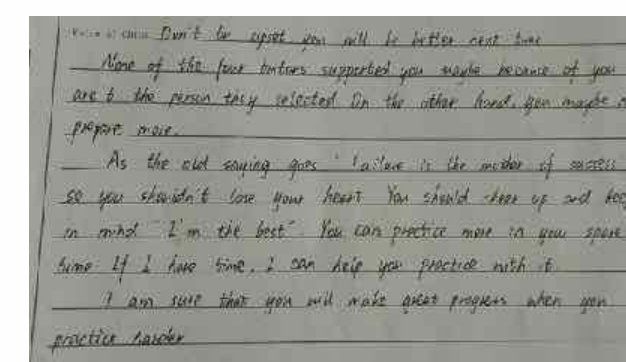 Voice of China Don't be upset you will be better next time
None of the four tutors supported you maybe because of you
are 6 the person they selected On the other hand, you maybe
prepare more.
As the old saying goes " Failure is the mother of success
so you shouldn't lose your heart You should cheer up and keep
in mind "I'm the best". You can practice more in your spare
time If I have time, I can help you practice with it
I am sure that you will make great progress when you
practice harder